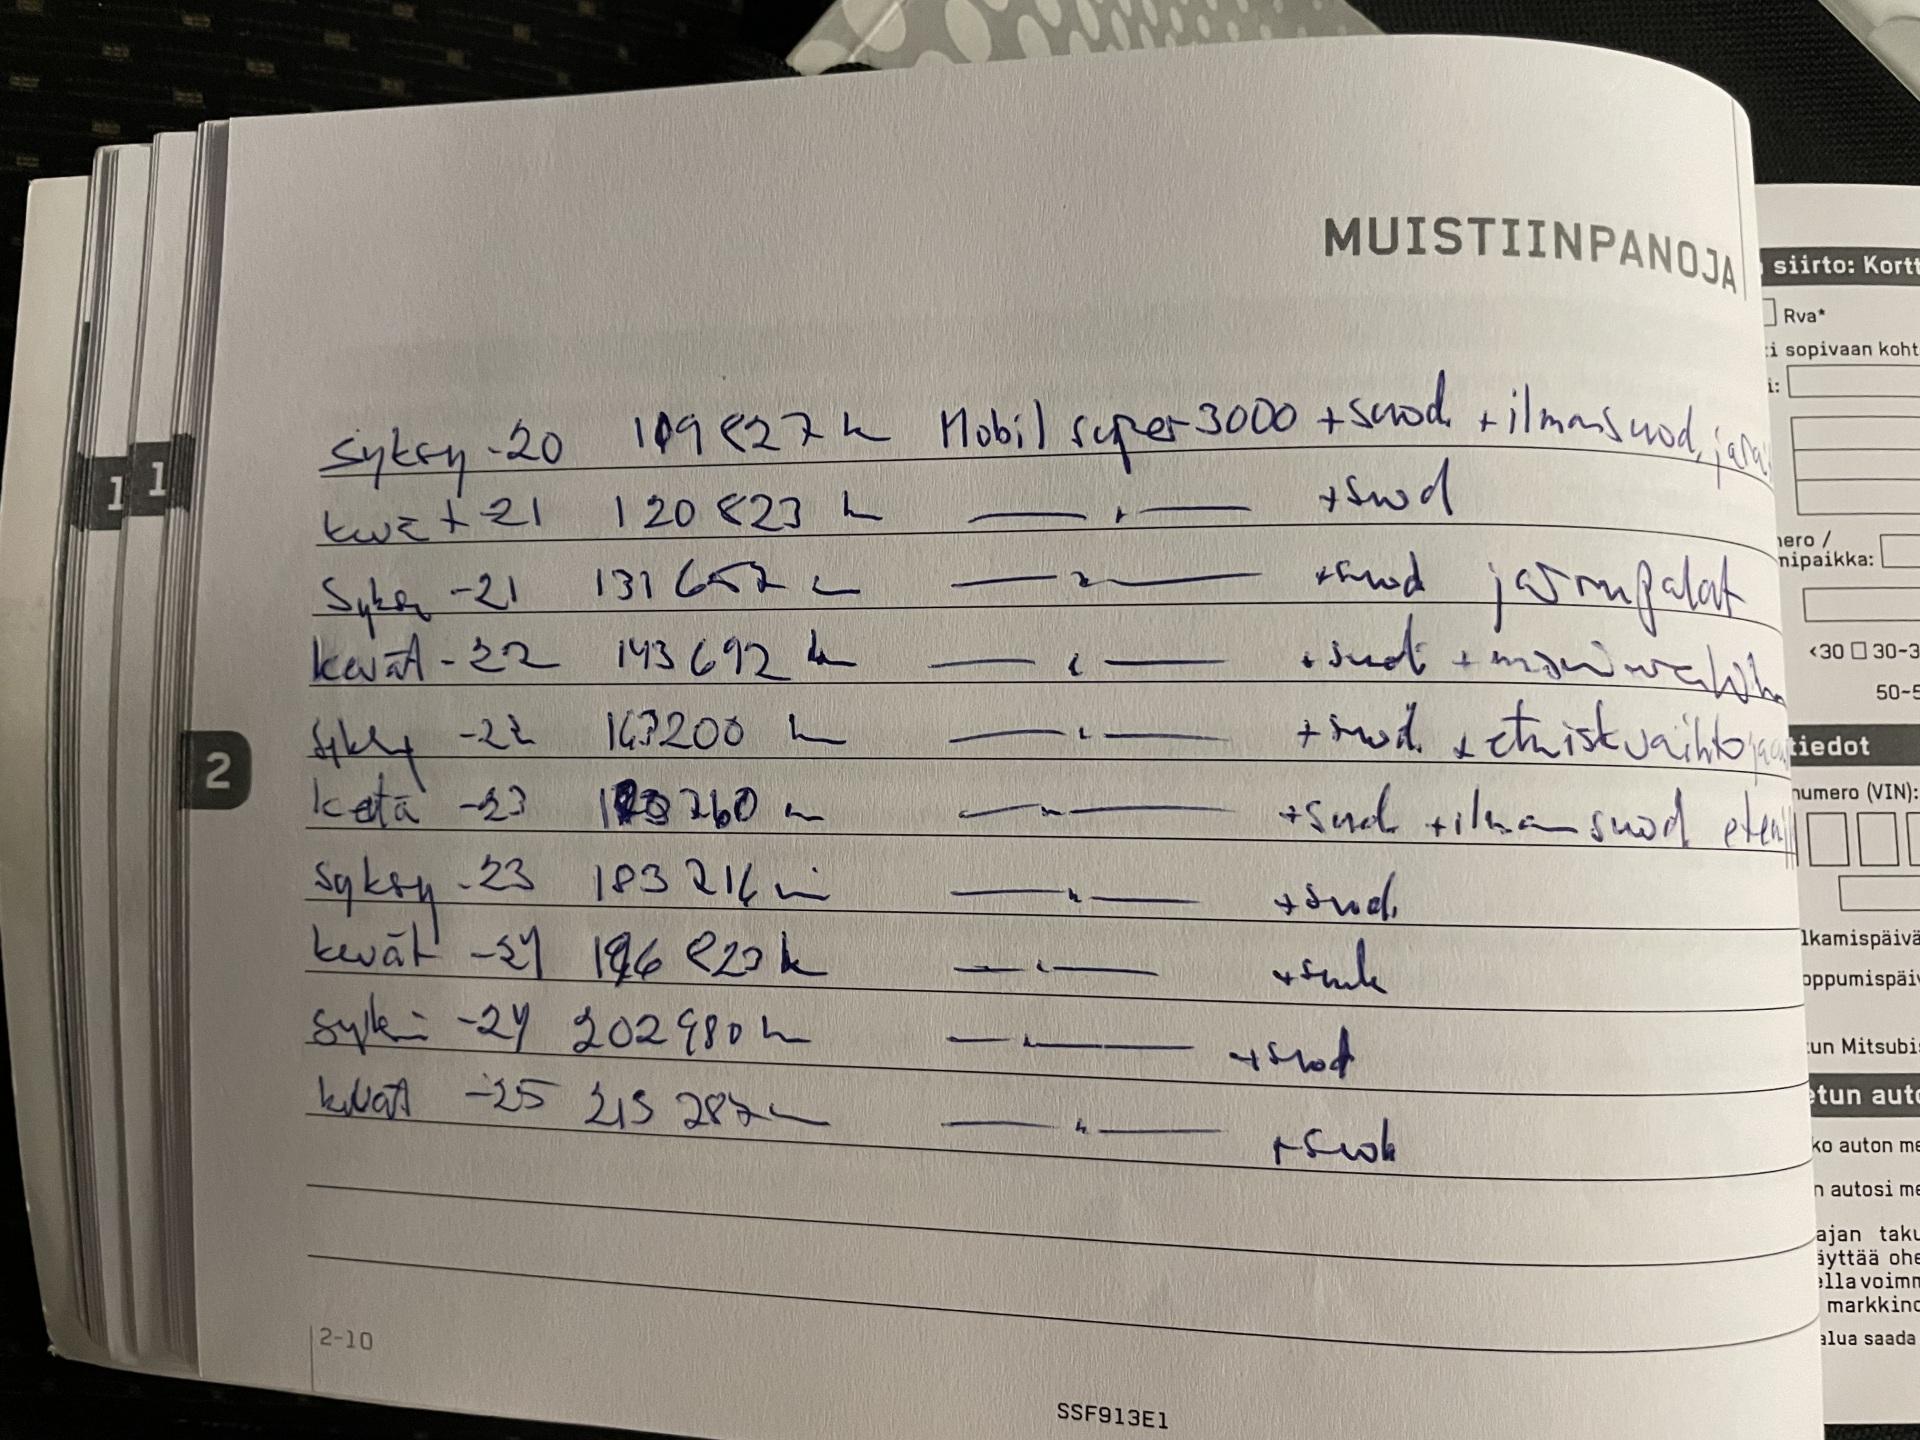 MUISTIINPANOJA
syksy -20 109827 k Mobil super 3000 +suod. +ilmansuod, jarru
kevät -21 120 823 k —— " —— +suod
Syksy -21 131 657 k —— " —— +suod jarrupalat
kevät -22 143 692 k —— " —— +suod +
syksy -22 163200 k —— " —— +suod. +
-23 260 k —— " —— +suod +ilman suod
syksy -23 183 214 —— " —— +suod.
kevät -24 196 823 k —— " —— +suod
syksy -24 202 980 k —— " —— +suod
kevät -25 215 287 k —— " —— +suod
1
1
2
2-10
SSF913E1
siirto: Kortt
Rva*
i sopivaan koht
i:
nero /
nipaikka:
<30 30-3
50-5
tiedot
numero (VIN):
lkamispäivä
oppumispäiv
un Mitsubis
etun auto
ko auton me
n autosi me
ajan taku
äyttää ohe
ella voimm
markkino
alua saada